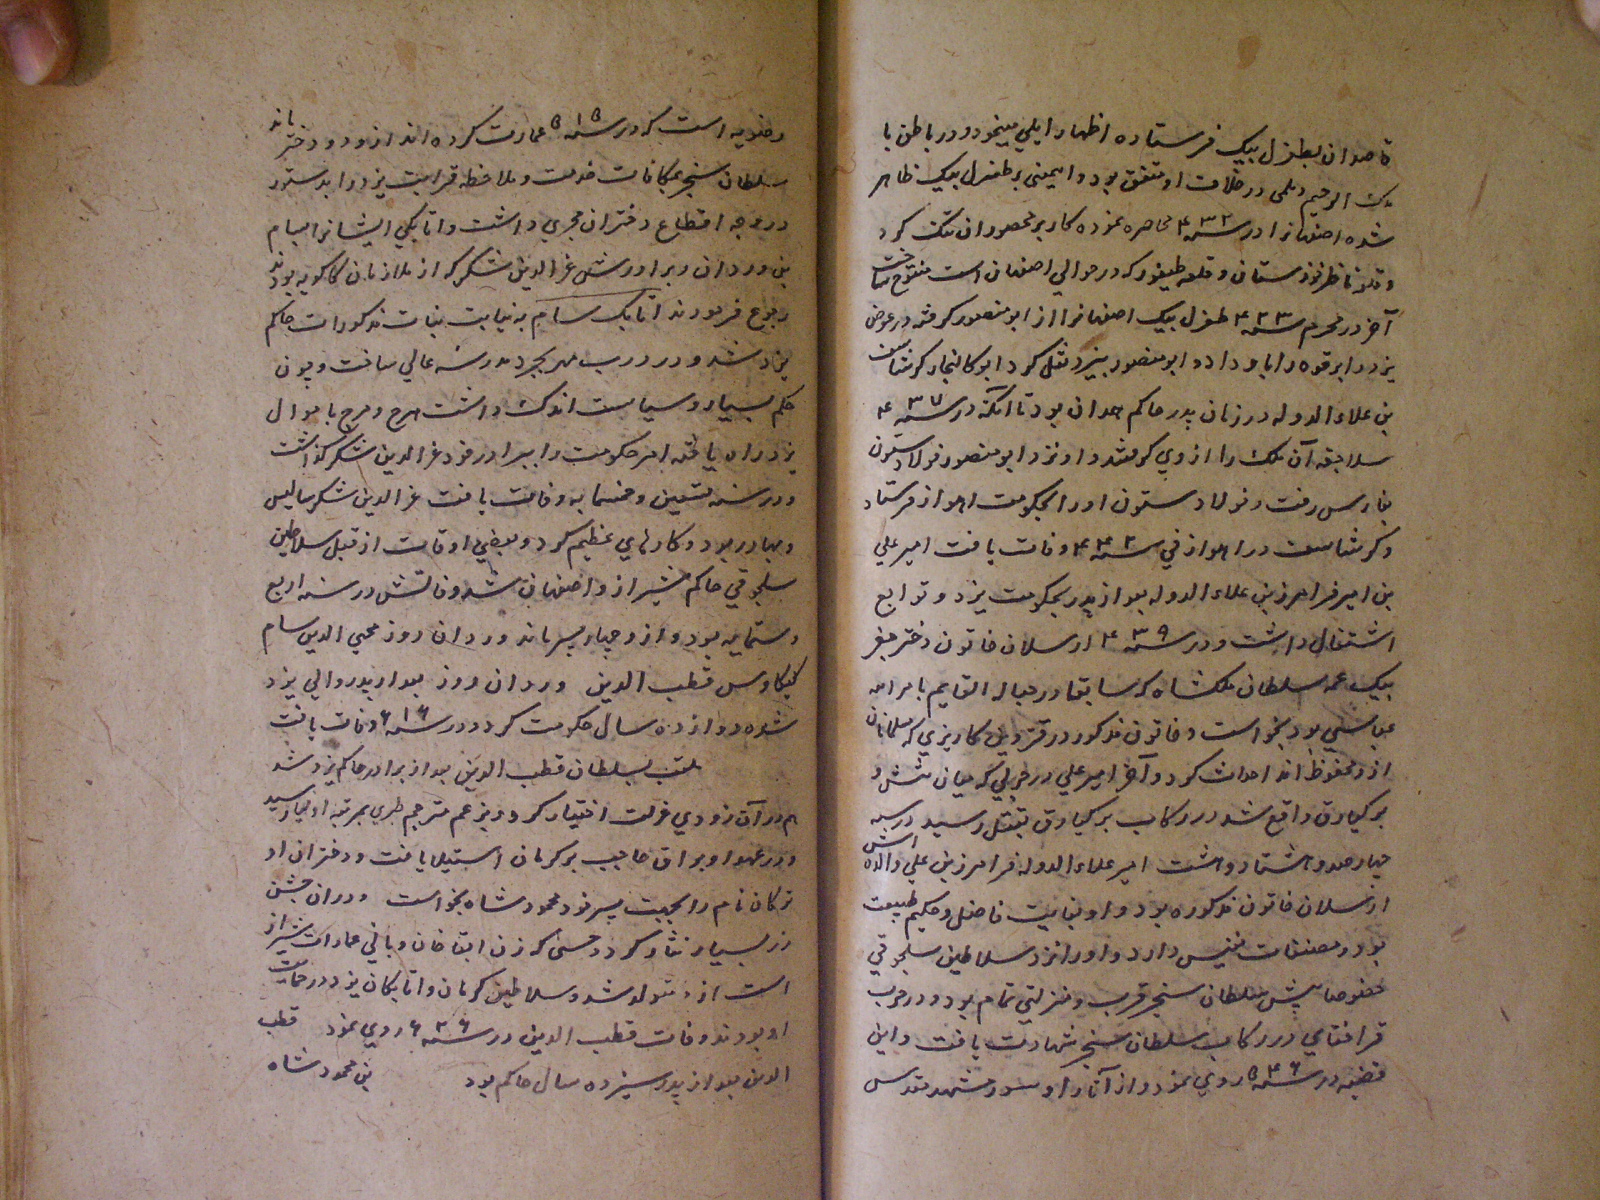 قاصدان بطغرل بیک فرستاده اظهار ایلی مینمود و در باطن با
ملک الرحیم دیلمی در خلافت او متفق بود و ایمعنی بر طغرل بیک ظاهر
شده اصفهانرا در سنه ۴۳۲ محاصره نموده کار بر محصوران تنک کرد
و قلعه طیفور که در حوالی اصفهان است مفتوح ساخت
آخر در محرم سنه ۴۳۳ طغرل بیک اصفهانرا از ابو منصور گرفته در عوض
یزد و ابرقوه را باو داد و ابو منصور بیزد نقل کرد ابو کالنجار کرشاسف
بن علاء الدوله در زمان پدر حاکم همدان بود تا آنکه در سنه ۴۳۷
سلاجقه آن ملک را از وی گرفتند و او نزد ابو منصور فولاد ستون
بفارس رفت و فولاد ستون او را بحکومت اهواز فرستاد
و کرشاسف در اهواز فی سنه ۴۴۳ وفات یافت امیر علی
بن امیر فرامرز بن علاء الدوله بعد از پدر بحکومت یزد و توابع
اشتغال داشت و در سنه ۴۳۹ ارسلان خاتون دختر جغر
بیک عمه سلطان ملکشاه که سابقا در حباله القایم بامر الله
عباسی بود بخواست و خاتون مذکور در کاریزی که مسلمانان
از و محفوظ اند احداث کرد و آخر امیر علی در حربی که میان تتش و
برکیارق واقع شد در رکاب برکیارق بقتل رسید در سنه
چهارصد و هشتاد و هشت امیر علاء الدوله فرامرز بن علی والده اش
ارسلان خاتون مذکوره بود و او بغایت فاضل و حکیم طبیعت
بود و مصنفات نفیس دارد و او را نزد سلاطین سلجوقی
خصوصا پیش سلطان سنجر قرب و منزلتی تمام بود و در حرب
قراختای در رکاب سلطان سنجر شهادت یافت و این
قضیه در سنه ۵۳۶ روی نمود و از آثار او سور مشهد مقدس
رضویه است که در سنه ۵۱۵ عمارت کرده اند از و دو دختر ماند
سلطان سنجر بمکافات خدمت و ملاحظه قرابت یزد را بدستور
در وجه اقطاع دختران مجری داشت و اتابکی ایشانرا بسام
بن وردان و برادرش عز الدین لنکر که از ملازمان کاکویه بودند
رجوع فرمودند اتابک سام به نیابت بنات مذکورات حاکم
یزد شد و در درب مهریجرد مدرسه عالی ساخت و چون
حلم بسیار و سیاست اندک داشت هرج و مرج باحوال
یزد راه یافته امر حکومت را ببرادر خود عز الدین لنکر گذاشت
و در سنه تسعین و خمسمایه وفات یافت عز الدین لنکر سالیس
و بهادر بود و کارهای عظیم کرد و بعضی اوقات از قبل سلاطین
سلجوقی حاکم شیراز و اصفهان شد وفاتش در سنه اربع
و ستمایه بود و از و چهار پسر ماند وردان روز محیی الدین سام
کیکاوس قطب الدین وردان روز بعد از پدر والی یزد
شده دوازده سال حکومت کرد و در سنه ۶۱۶ وفات یافت
ملقب بسلطان قطب الدین بعد از برادر حاکم یزد شد
هم در آن زودی عزلت اختیار کرد و بزعم مترجم طبری بمرتبه اولیا رسید
و در عهد او براق حاجب بر کرمان استیلا یافت و دختران او
ترکان نام را بجهت پسر خود محمود شاه بخواست و دران جشن
زر بسیار نثار کرد و حسنی که زن ابقا خان و بانی عمارات شیراز
است از و متولد شد و سلاطین کرمان و اتابکان یزد در حمایت
او بودند وفات قطب الدین در سنه ۶۲۶ روی نمود قطب
الدین بعد از پدر سیزده سال حاکم بود بن محمود شاه